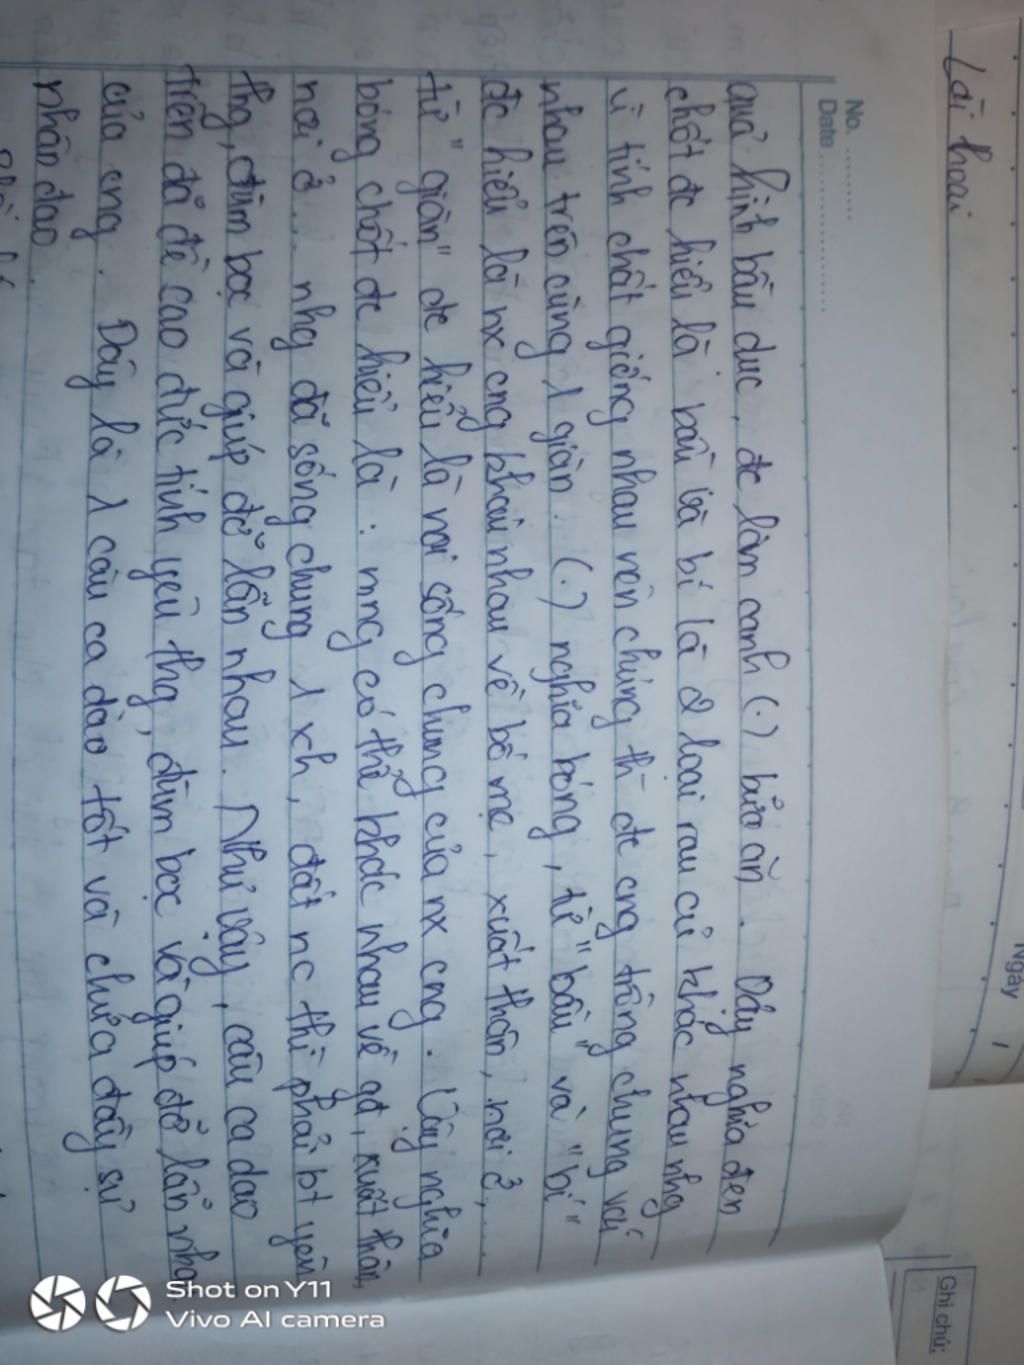 Lời thoại
Ngày /
No. ..........
Date ........................
quả hình bầu dục, đc làm canh (.) bữa ăn. Vậy nghĩa đen
chốt đc hiểu là bầu và bí là 2 loại rau củ khác nhau nhg
vì tính chất giống nhau nên chúng thì đc cng trồng chung với
nhau trên cùng 1 giàn. (.) nghĩa bóng, từ "bầu" và "bí"
đc hiểu là nx cng khai nhau về bố mẹ, xuất thân, nơi ở,...
từ "giàn" đc hiểu là nơi sống chung của nx cng. Vậy nghĩa
bóng chốt đc hiểu là: mng có thể khác nhau về gđ, xuất thân,
nơi ở... nhg đã sống chung 1 xh, đất nc thì phải bt yêu
thg, đùm bọc và giúp đỡ lẫn nhau. Như vậy, câu ca dao
trên đã đề cao đức tính yêu thg, đùm bọc và giúp đỡ lẫn nha
của cng. Đây là 1 câu ca dao tốt và chứa đầy sự
nhân đạo.
Ghi chú:
Shot on Y11
Vivo AI camera